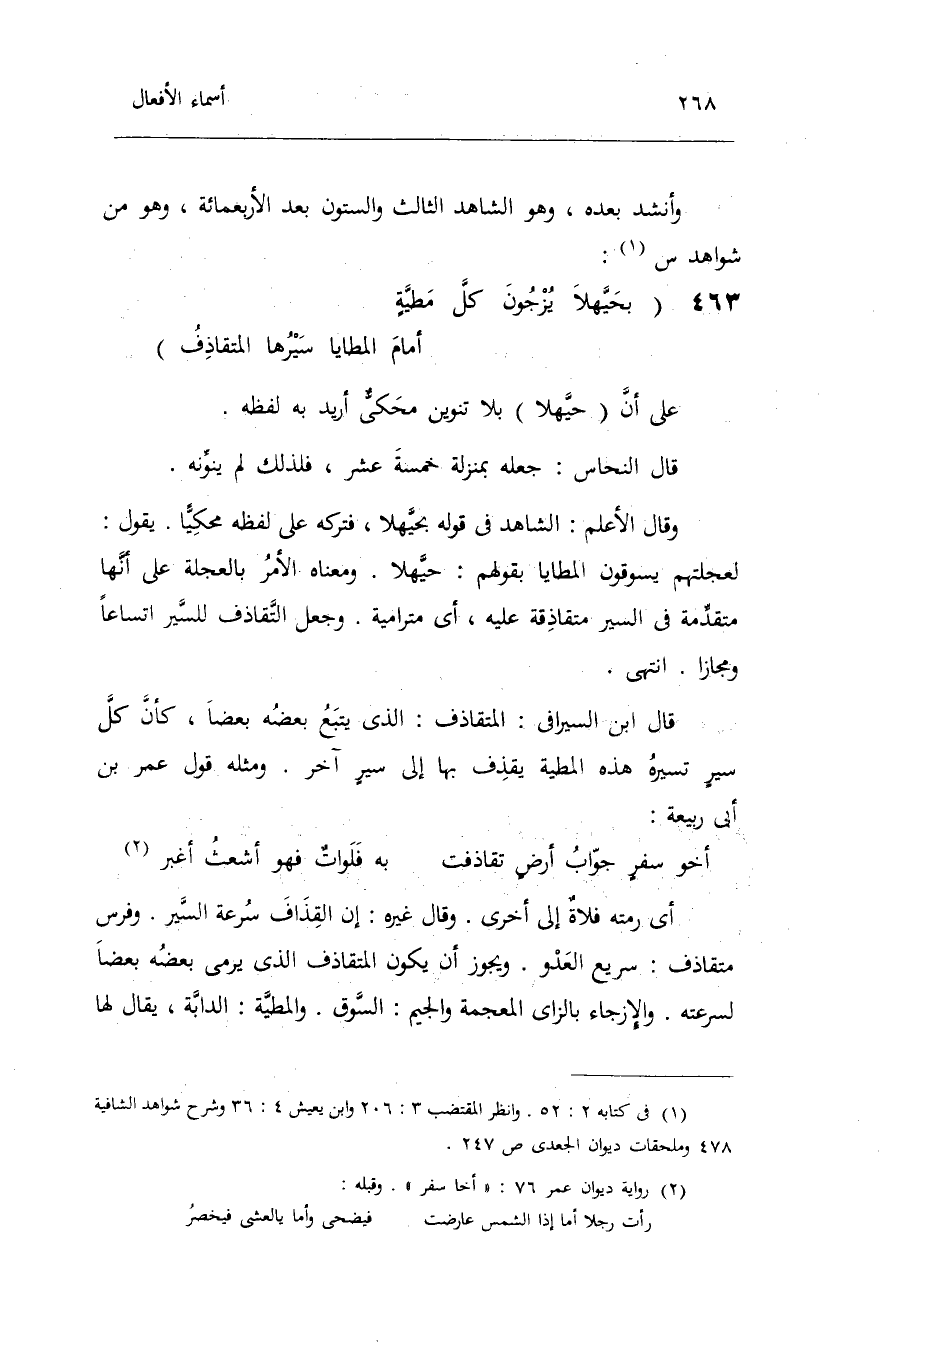 ٢٦٨ أسماء الأفعال
وأنشد بعده ، وهو الشاهد الثالث والستون بعد الأربعمائة ، وهو من
شواهد س (١) :
٤٦٣ ( بحَيَّهلاَ يُزْجُونَ كلَّ مَطيَّةٍ
أمامَ المطايا سَيْرُها المتقاذِفُ )
على أنَّ ( حيَّهلا ) بلا تنوين محَكىٌّ أريد به لفظه .
قال النحاس : جعله بمنزلة خمسةَ عشر ، فلذلك لم ينوِّنه .
وقال الأعلم : الشاهد فى قوله بحيَّهلا ، فتركه على لفظه محكِيًّا . يقول :
لعجلتهم يسوقون المطايا بقولهم : حيَّهلا . ومعناه الأمرُ بالعجلة على أنَّها
متقدِّمة فى السير متقاذِقة عليه ، أى مترامية . وجعل التَّقاذف للسَّير اتساعاً
ومجازا . انتهى .
قال ابن السيرافى : المتقاذف : الذى يتبَعُ بعضُه بعضاَ ، كأنَّ كلَّ
سيرٍ تسيرهُ هذه المطية يقذِف بها إلى سيرٍ آخر . ومثله قول عمر بن
أبى ربيعة :
أخو سفرٍ جوّابُ أرضٍ تقاذفت به فَلَواتٌ فهو أشعثُ أغبر (٢)
أى رمته فلاةٌ إلى أخرى . وقال غيره : إن القِذَافَ سُرعة السَّير . وفرس
متقاذف : سريع العَدْو . ويجوز أن يكون المتقاذف الذى يرمى بعضُه بعضاَ
لسرعته . والإزجاء بالزاى المعجمة والجيم : السَّوق . والمطيَّة : الدابَّة ، يقال لها
(١) فى كتابه ٢ : ٥٢ . وانظر المقتضب ٣ : ٢٠٦ وابن يعيش ٤ : ٣٦ وشرح شواهد الشافية
٤٧٨ وملحقات ديوان الجعدى ص ٢٤٧ .
(٢) رواية ديوان عمر ٧٦ : « أخا سفر » . وقبله :
رأت رجلا أما إذا الشمس عارضت فيضحى وأما يالعشى فيخصرُ